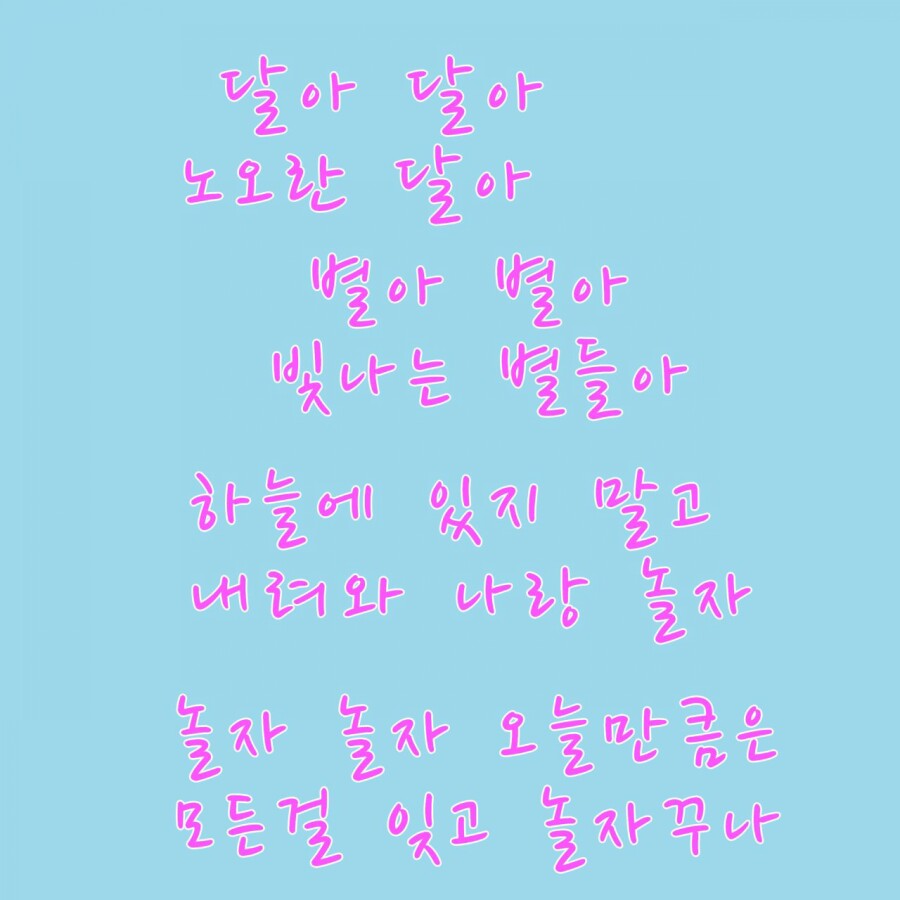 달아 달아
노오란 달아
별아 별아
빛나는 별들아
하늘에 있지 말고
내려와 나랑 놀자
놀자 놀자 오늘만큼은
모든걸 잊고 놀자꾸나